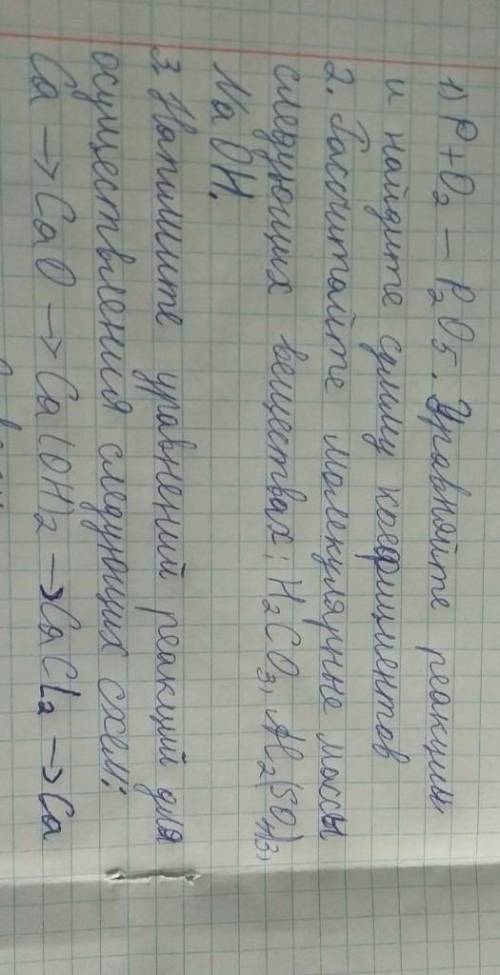 1) P + O₂ — P₂O₅. Уравняйте реакции
и найдите сумму коефициентов
2. Рассчитайте молекулярные массы
следующих веществах: H₂CO₃, Al₂(SO₄)₃,
NaOH.
3. Напишите уравнений реакций для
осуществления следующих схем:
Ca → CaO → Ca(OH)₂ → CaCl₂ → Ca